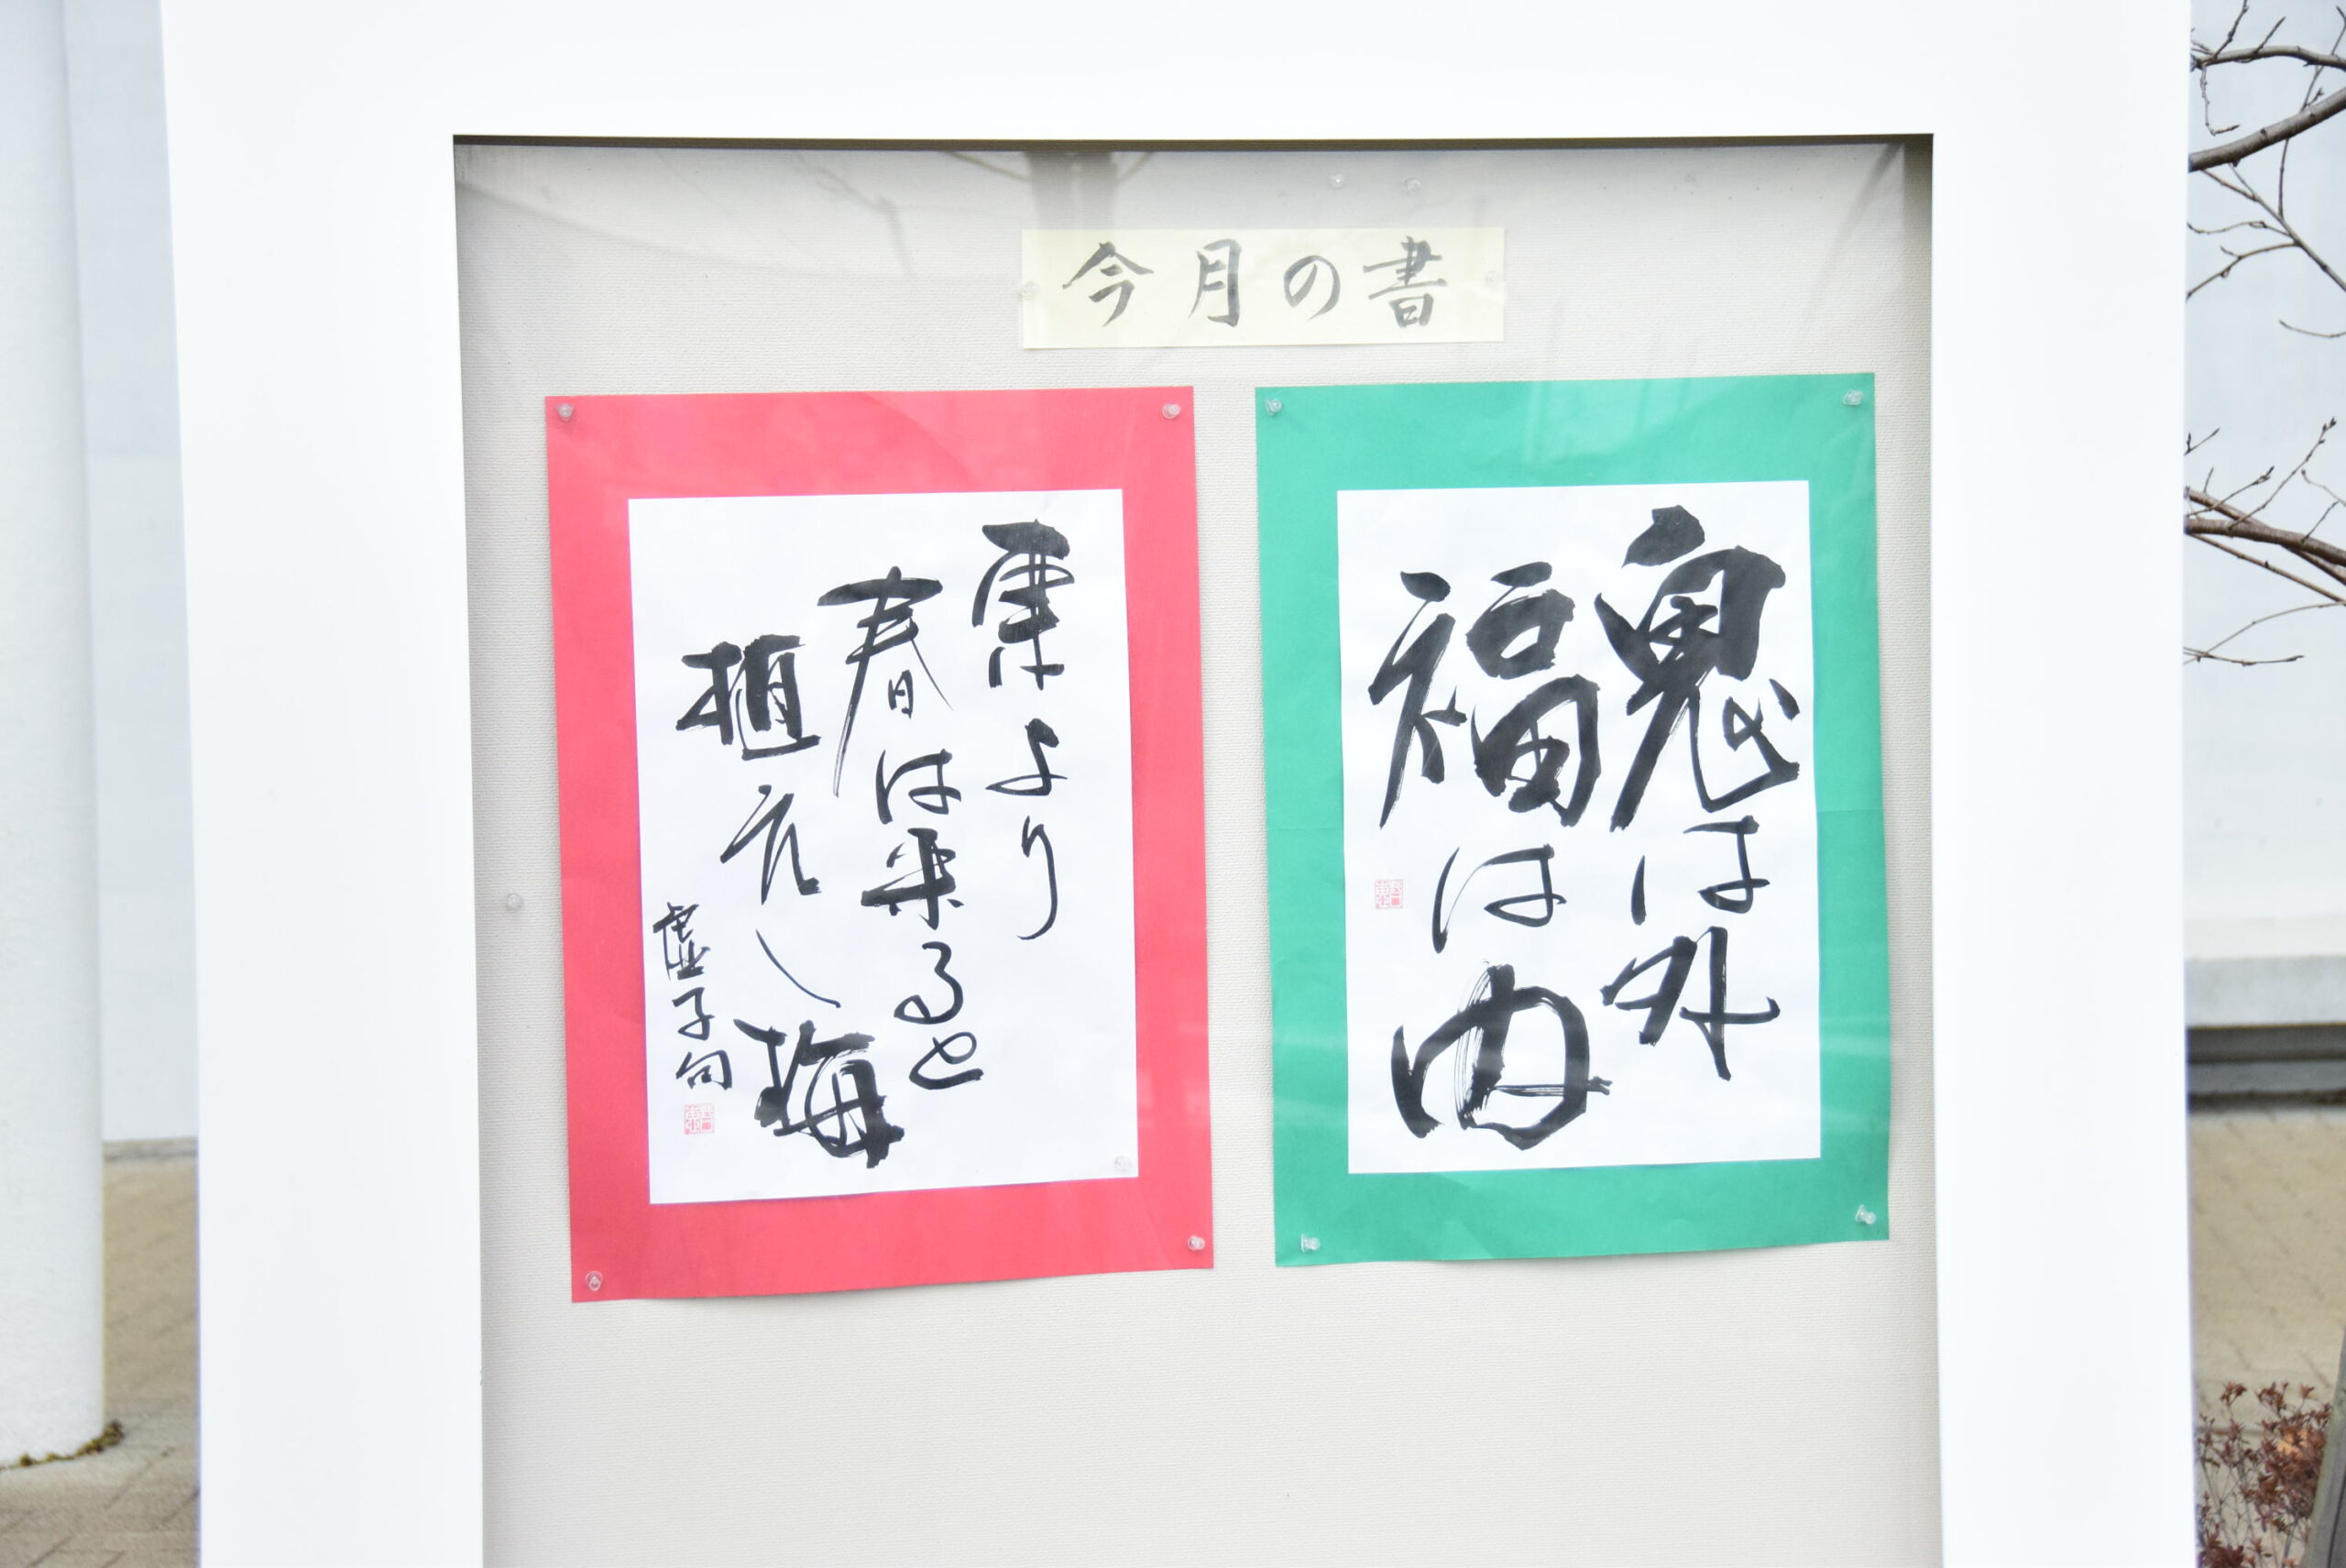 今月の書
鬼は外
福は内
東より
春は来ると
植えし梅
虚子句